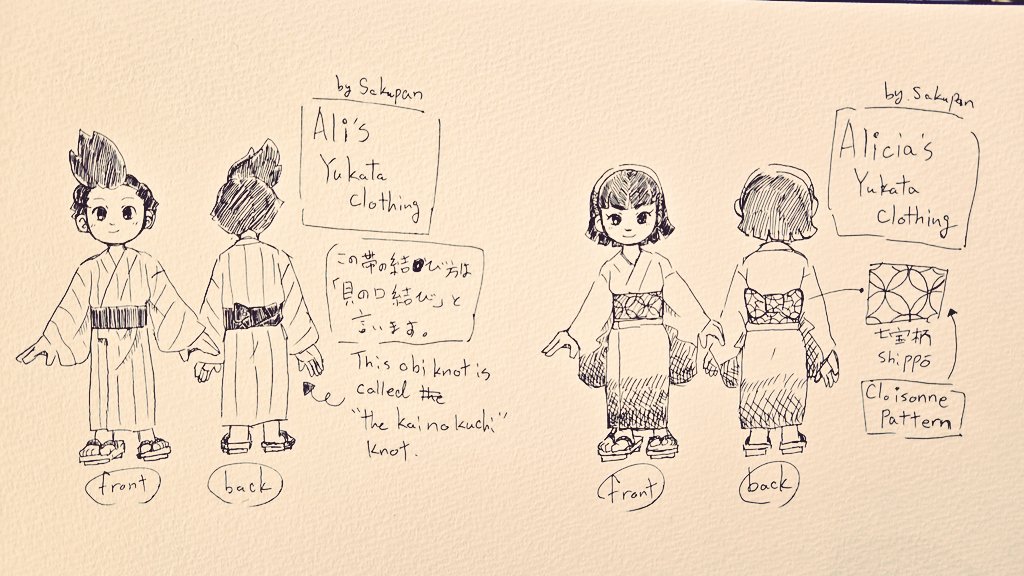 by Sakupan
Ali's
Yukata
Clothing
この帯の結び方は
「貝の口結び」と
言います。
This obi knot is
called the
"the kai no kuchi"
knot.
front
back
by Sakupan
Alicia's
Yukata
Clothing
七宝柄
shippō
Cloisonne
pattern
front
back